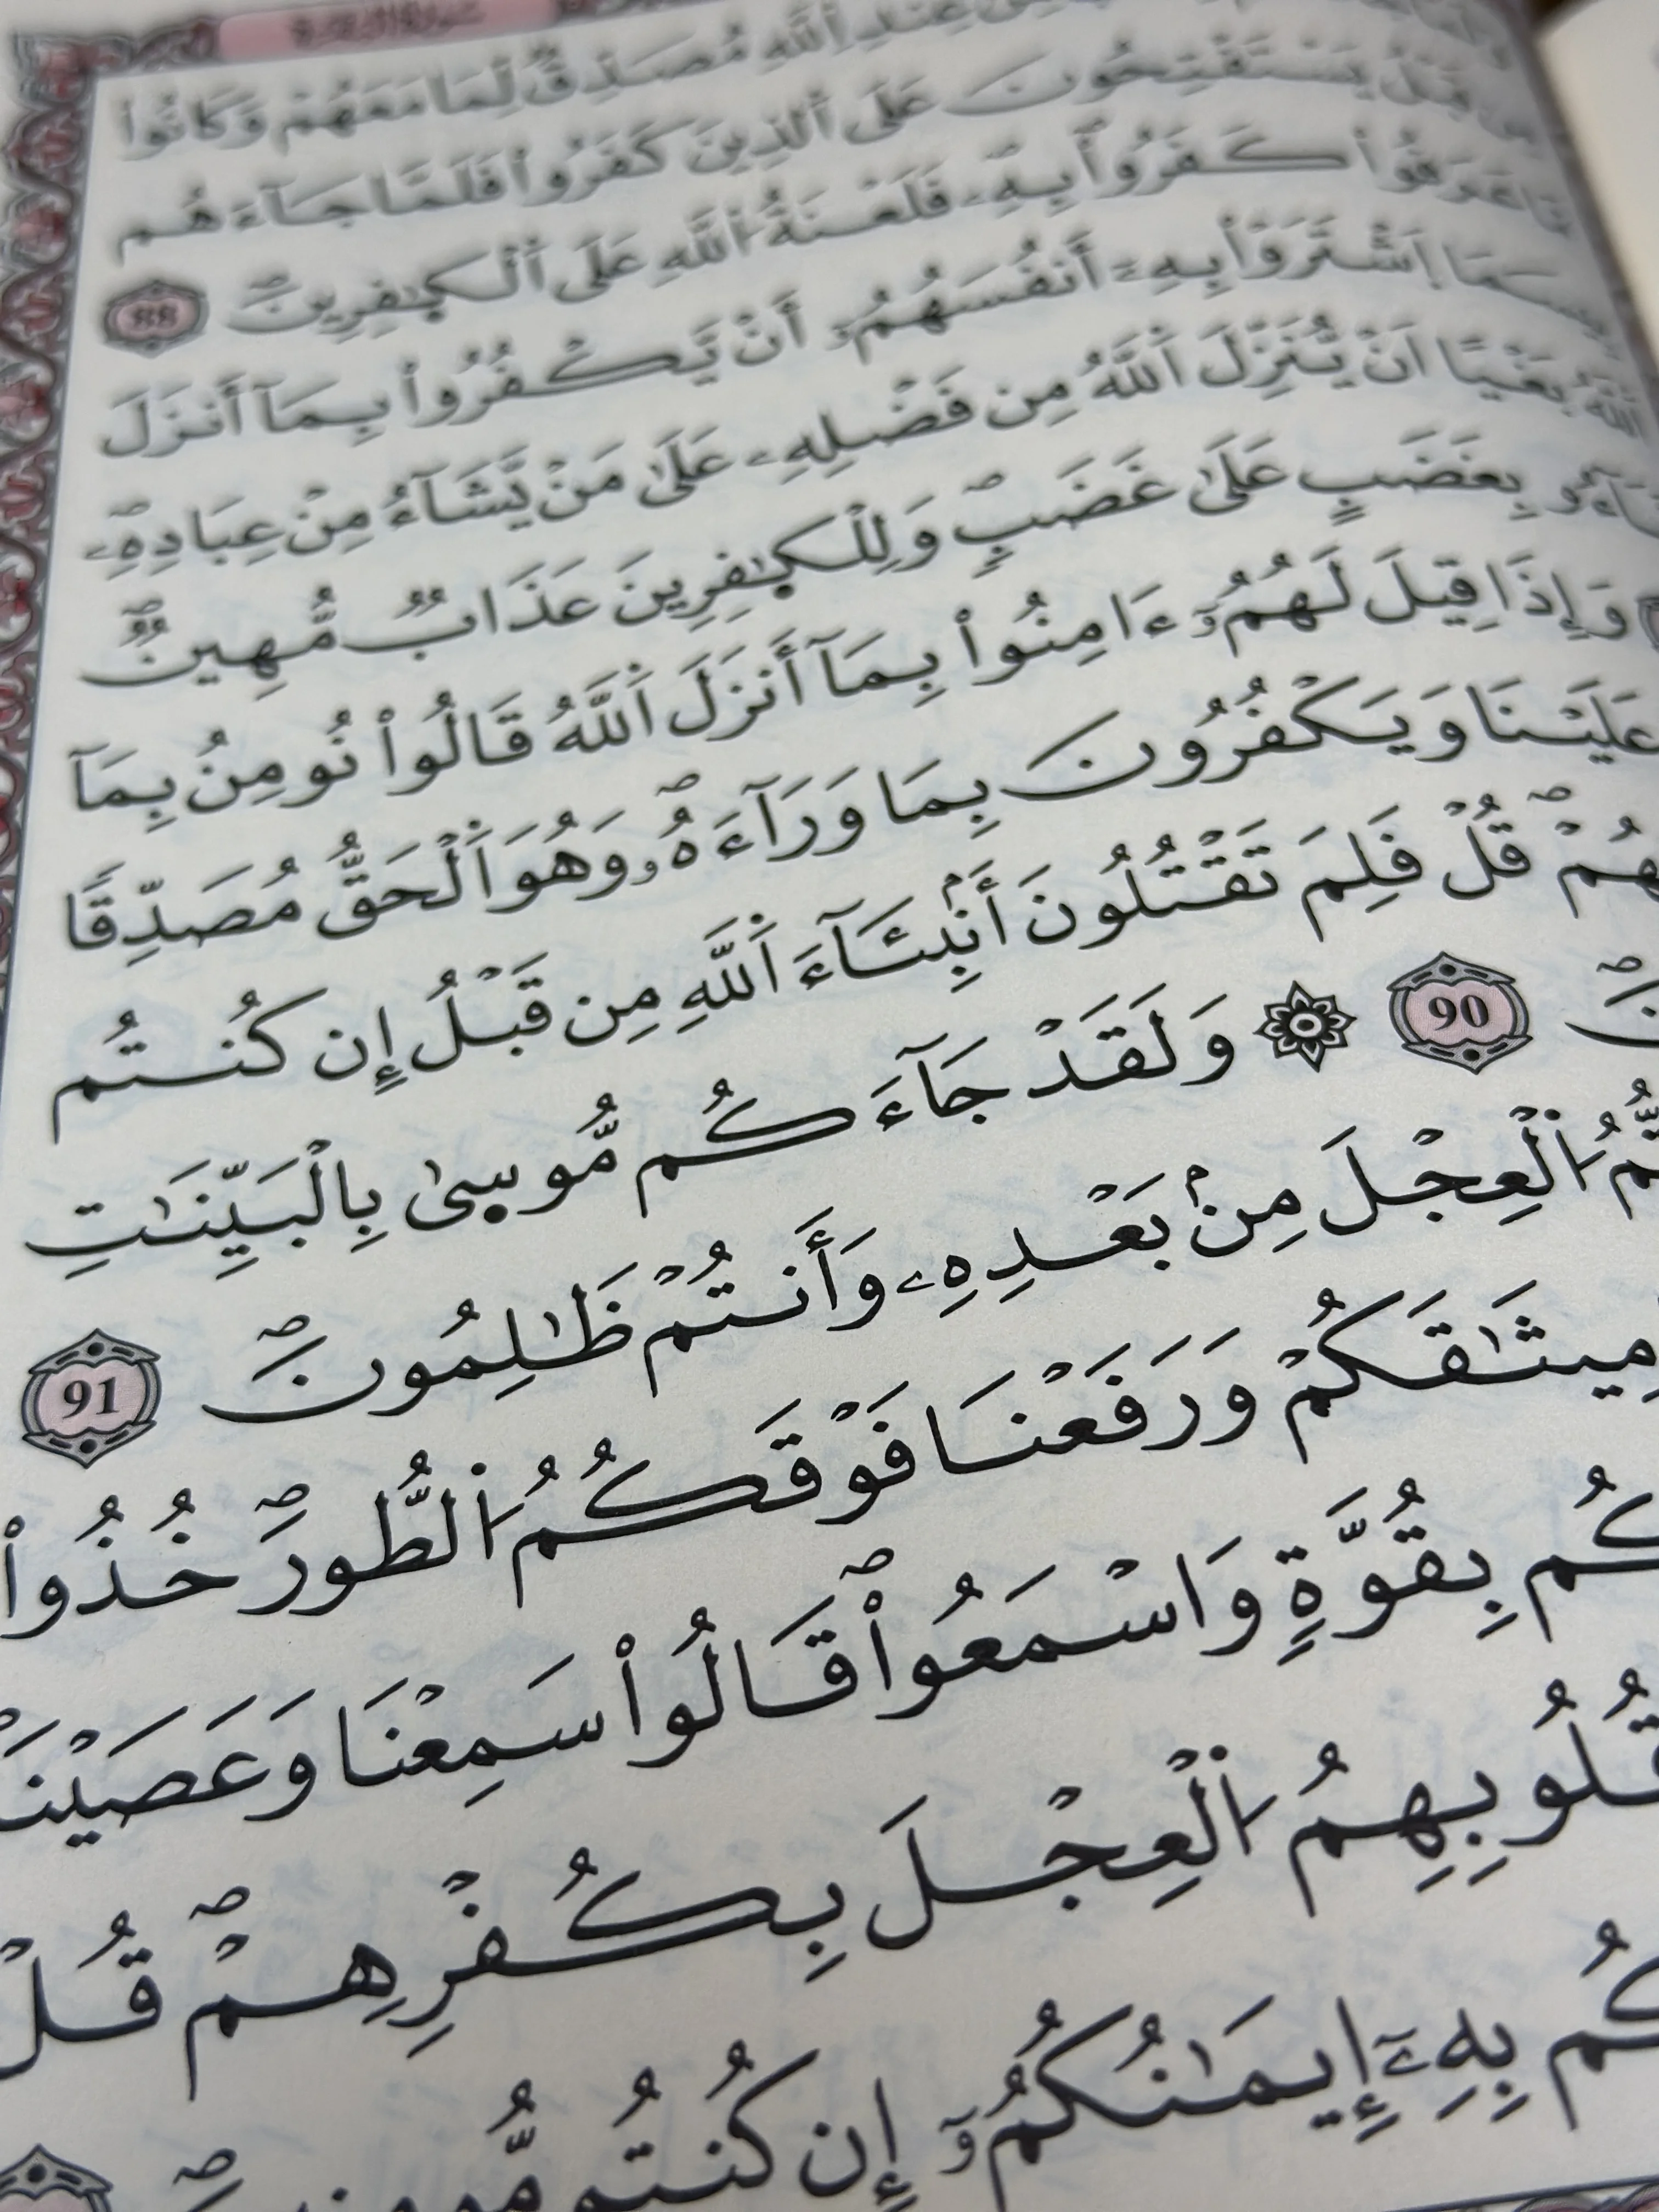 عِندِ اِ۬للَّهِ مُصَدِّقٞ لِّمَا مَعَهُمْ وَكَانُواْ
يَسْتَفْتِحُونَ عَلَى اَ۬لذِينَ كَفَرُواْ فَلَمَّا جَآءَهُم
عَرَفُواْ كَفَرُواْ بِهِۦ فَلَعْنَةُ اُ۬للَّهِ عَلَى اَ۬لْكٰ۪فِرِينَۖ 88
اَ۪شْتَرَوْاْ بِهِۦٓ أَنفُسَهُمُۥٓ أَنْ يَّكْفُرُواْ بِمَآ أَنزَلَ
اَ۬للَّهُ بَغْياً اَنْ يُّنَزِّلَ اَ۬للَّهُ مِن فَضْلِهِۦ عَلَىٰ مَنْ يَّشَآءُ مِنْ عِبَادِهِۦۖ
بِغَضَبٍ عَلَىٰ غَضَبٖۖ وَلِلْكٰ۪فِرِينَ عَذَابٞ مُّهِينٞۖ
وَإِذَا قِيلَ لَهُمُۥٓ ءَامِنُواْ بِمَآ أَنزَلَ اَ۬للَّهُ قَالُواْ نُومِنُ بِمَآ
عَلَيْنَا وَيَكْفُرُونَ بِمَا وَرَآءَهُۥۖ وَهُوَ اَ۬لْحَقُّ مُصَدِّقاً
قُلْ فَلِمَ تَقْتُلُونَ أَنۢبِئَآءَ اَ۬للَّهِ مِن قَبْلُ إِن كُنتُم
90 ۞ وَلَقَدْ جَآءَكُم مُّوس۪ىٰ بِالْبَيِّنَٰتِ
اُ۬لْعِجْلَ مِنۢ بَعْدِهِۦ وَأَنتُمْ ظَٰلِمُونَۖ 91
مِيثَٰقَكُمْ وَرَفَعْنَا فَوْقَكُمُ اُ۬لطُّورَۖ خُذُواْ
بِقُوَّةٖ وَاسْمَعُواْۖ قَالُواْ سَمِعْنَا وَعَصَيْنَا
قُلُوبِهِمُ اُ۬لْعِجْلَ بِكُفْرِهِمْۖ قُلْ
بِهِۦٓ إِيمَٰنُكُمُۥٓ إِن كُنتُم